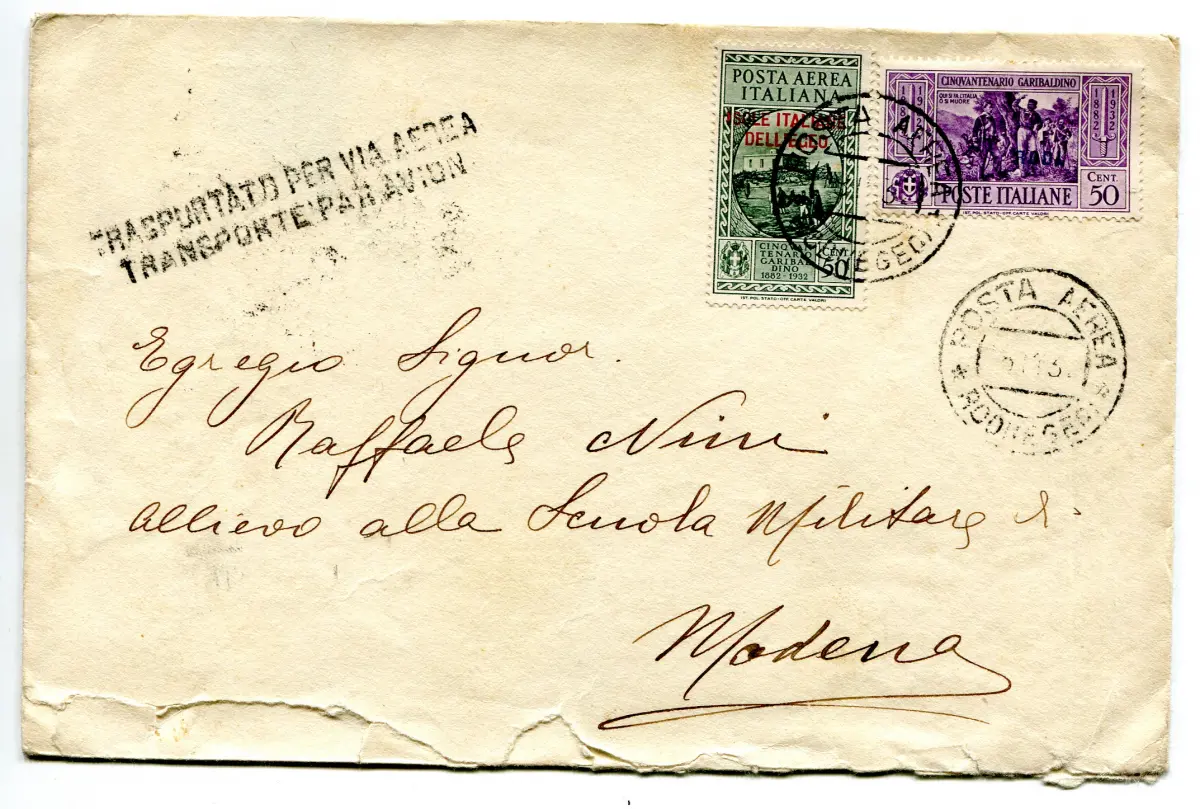 TRASPORTATO PER VIA AEREA
TRANSPORTE PAR AVION
POSTA AEREA
ITALIANA
ISOLE ITALIANE
DELL'EGEO
CINQUAN
TENARIO
GARIBAL
DINO
1882-1932
CENT.
50
IST. POL. STATO-OFF. CARTE VALORI
CINQVANTENARIO GARIBALDINO
1882
1932
QUI SI FA L'ITALIA
O SI MUORE
1882
1932
POSTE ITALIANE
CENT.
50
IST. POL. STATO-OFF. CARTE VALORI
POSTA AEREA
POSTA AEREA
Egregio Signor.
Raffaele Nini
allievo alla Scuola Militare di
Modena